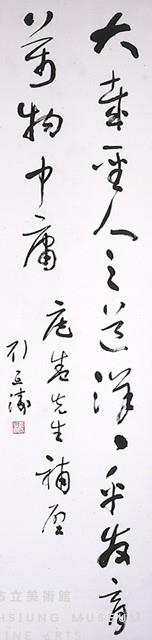 大哉聖人之道洋洋乎發育
萬物中庸
先生補壁
劉延濤
市立美術館
HSIUNG MUSEUM
INE ARTS